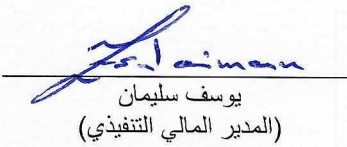 يوسف سليمان
(المدير المالي التنفيذي)